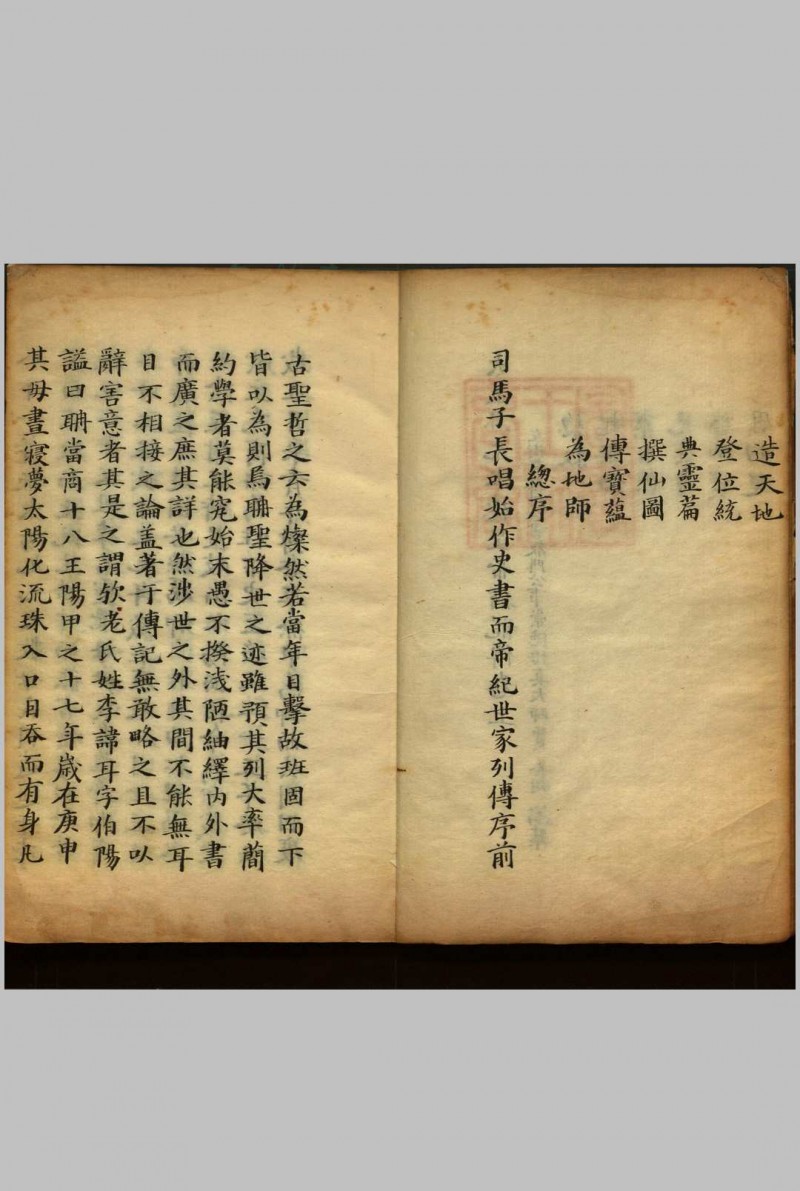 造天地
登位統
典靈篇
撰仙圖
傳寶蘊
為地師
總序
司馬子長唱始作史書而帝紀世家列傳序前
古聖哲之云為燦然若當年目擊故班固而下
皆以為則焉聃聖降世之迹雖預其列大率簡
約學者莫能究始末愚不揆淺陋紬繹內外書
而廣之庶其詳也然涉世之外其間不能無耳
目不相接之論盖著于傳記無敢略之且不以
辭害意者其是之謂欤老氏姓李諱耳字伯陽
謚曰聃當商十八王陽甲之十七年歲在庚申
其母晝寢夢太陽化流珠入口目吞而有身凡